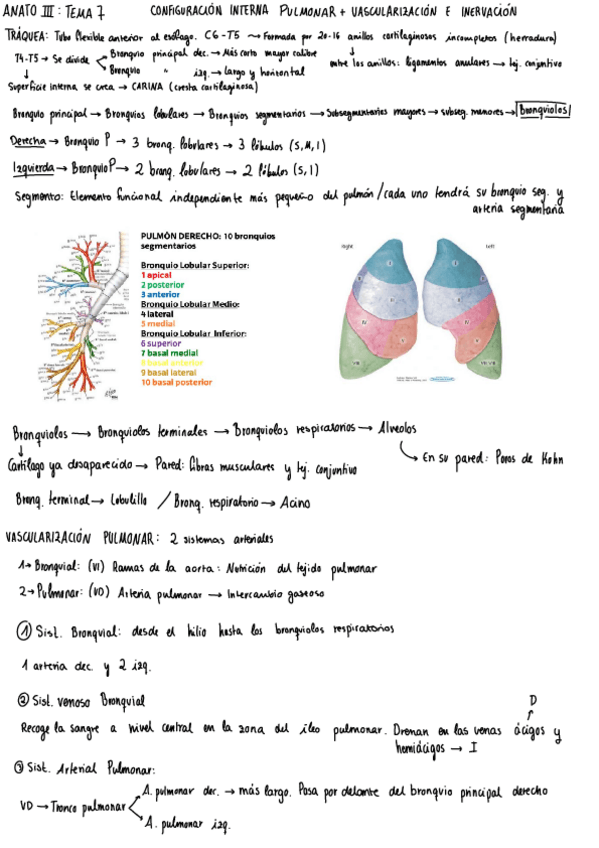 ANATO III: TEMA 7 CONFIGURACIÓN INTERNA PULMONAR + VASCULARIZACIÓN E INERVACIÓN
TRÁQUEA: Tubo flexible anterior al esófago. C6-T5 → Formada por 20-16 anillos cartilaginosos incompletos (herradura)
T4-T5 → Se divide Bronquio principal dec. → Más corto mayor calibre
Bronquio " izq → largo y horizontal
entre los anillos: ligamentos anulares → tej. conjuntivo
Superficie interna se crea → CARINA (cresta cartilaginosa)
Bronquio principal → Bronquios lobulares → Bronquios segmentarios → Subsegmentarios mayores → subseg. menores → Bronquiolos
Derecha → Bronquio P → 3 bronq. lobulares → 3 lóbulos (S, M, I)
Izquierda → Bronquio P → 2 bronq. lobulares → 2 lóbulos (S, I)
Segmento: Elemento funcional independiente más pequeño del pulmón / cada uno tendrá su bronquio seg. y
arteria segmentaria
PULMÓN DERECHO: 10 bronquios
segmentarios
Bronquio Lobular Superior:
1 apical
2 posterior
3 anterior
Bronquio Lobular Medio:
4 lateral
5 medial
Bronquio Lobular Inferior:
6 superior
7 basal medial
8 basal anterior
9 basal lateral
10 basal posterior
Right Left
Bronquiolos → Bronquiolos terminales → Bronquiolos respiratorios → Alveolos
Cartílago ya desaparecido → Pared: fibras musculares y tej. conjuntivo
En su pared: Poros de Kohn
Bronq. terminal → Lobulillo / Bronq. respiratorio → Acino
VASCULARIZACIÓN PULMONAR: 2 sistemas arteriales
1→ Bronquial: (VI) Ramas de la aorta: Nutrición del tejido pulmonar
2→ Pulmonar: (VD) Arteria pulmonar → Intercambio gaseoso
① Sist. Bronquial: desde el hilio hasta los bronquiolos respiratorios
1 arteria dec. y 2 izq.
② Sist. venoso Bronquial
D
Recoge la sangre a nivel central en la zona del íleo pulmonar. Drenan en las venas ácigos y
hemiácigos → I
③ Sist. Arterial Pulmonar:
VD → Tronco pulmonar A. pulmonar dec. → más largo. Pasa por delante del bronquio principal derecho
A. pulmonar izq.